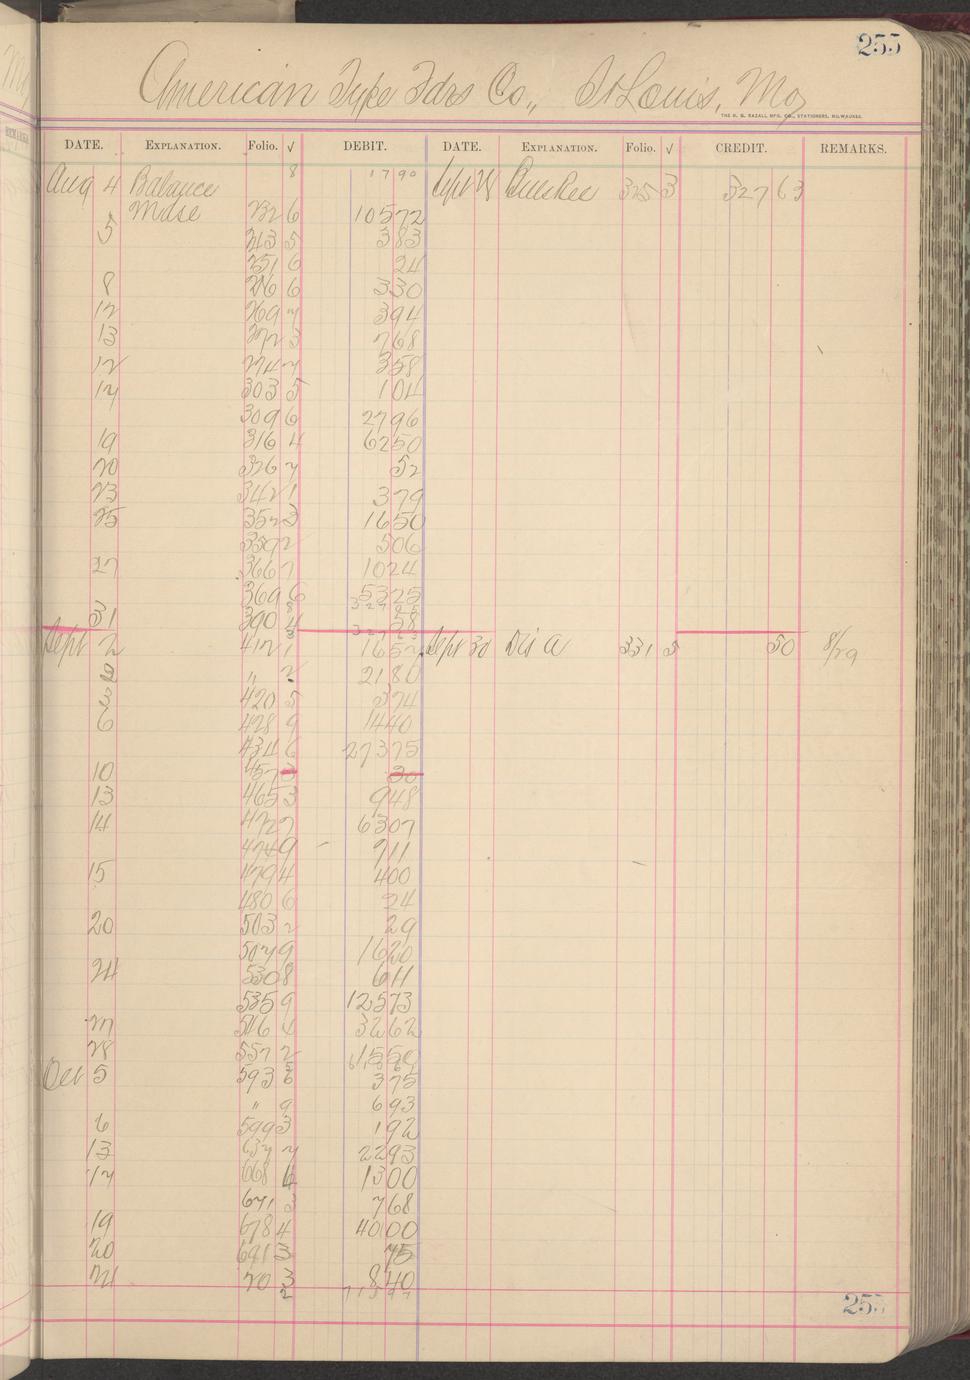 255
American Type Fdrs Co., St Louis, Mo,
THE H. G. RAZALL MFG. CO., STATIONERS, MILWAUKEE.
DATE. EXPLANATION. Folio. √ DEBIT. DATE. EXPLANATION. Folio. √ CREDIT. REMARKS.
Aug 4 Balance 8 17 90 Sept 28 325 3 327 63
Mdse 232 6 105 72
5 243 5 3 83
251 6 24
8 256 6 3 30
12 269 7 3 94
13 272 3 7 68
12 274 7 3 58
17 303 5 1 04
309 6 27 96
19 316 4 62 50
20 326 7 52
23 342 1 3 79
25 352 3 16 50
359 2 5 06
27 366 7 10 24
369 6 53 25
31 390 4 58
327 63
Sept 2 412 1 16 52 Sept 30 Dis a 331 5 50 8/29
2 " 2 21 80
3 420 5 3 74
6 428 9 14 40
434 6 273 75
10 457 3 30
13 465 3 9 48
14 472 7 63 07
474 9 7 11
15 479 4 4 00
480 6 24
20 503 2 29
507 9 16 20
24 530 8 6 11
535 9 125 73
27 516 4 32 62
28 557 2 15 50
Oct 5 593 6 3 75
" 9 6 93
6 599 3 1 92
13 637 7 22 93
17 668 6 13 00
671 3 7 68
19 678 4 40 00
20 691 3 75
21 70 3 8 40
2
255